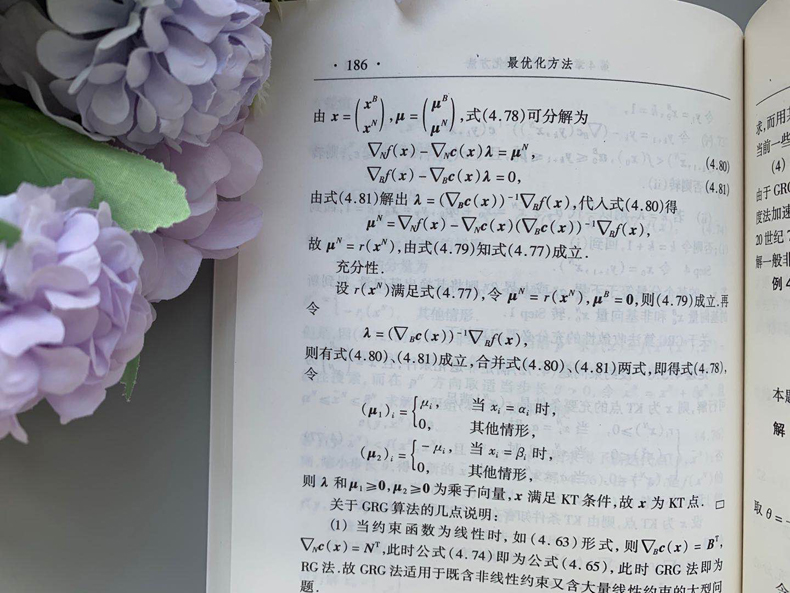 · 186 ·
最优化方法
由 x = (x^B x^N), μ = (μ^B μ^N), 式(4.78)可分解为
∇_N f(x) − ∇_N c(x)λ = μ^N, (4.80)
∇_B f(x) − ∇_B c(x)λ = 0, (4.81)
由式(4.81)解出 λ = (∇_B c(x))^{-1}∇_B f(x), 代入式(4.80)得
μ^N = ∇_N f(x) − ∇_N c(x)(∇_B c(x))^{-1}∇_B f(x),
故 μ^N = r(x^N), 由式(4.79)知式(4.77)成立.
充分性.
设 r(x^N)满足式(4.77), 令 μ^N = r(x^N), μ^B = 0, 则(4.79)成立. 再
令
λ = (∇_B c(x))^{-1}∇_B f(x),
则有式(4.80)、(4.81)成立, 合并式(4.80)、(4.81)两式, 即得式(4.78),
令
(μ_1)_i = { μ_i, 当 x_i = α_i 时,
0, 其他情形,
(μ_2)_i = { −μ_i, 当 x_i = β_i 时,
0, 其他情形,
则 λ 和 μ_1 ≥ 0, μ_2 ≥ 0 为乘子向量, x 满足 KT 条件, 故 x 为 KT 点. □
关于 GRG 算法的几点说明:
(1) 当约束函数为线性时, 如(4.63)形式, 则 ∇_B c(x) = B^T,
∇_N c(x) = N^T, 此时公式(4.74)即为公式(4.65), 此时 GRG 法即为
RG 法. 故 GRG 法适用于既含非线性约束又含大量线性约束的大型问
题.
求, 而用某
当前一些
(4)
由于 GRG
度法加速
20 世纪 7
解一般非
例 4
本题
解
取 θ =